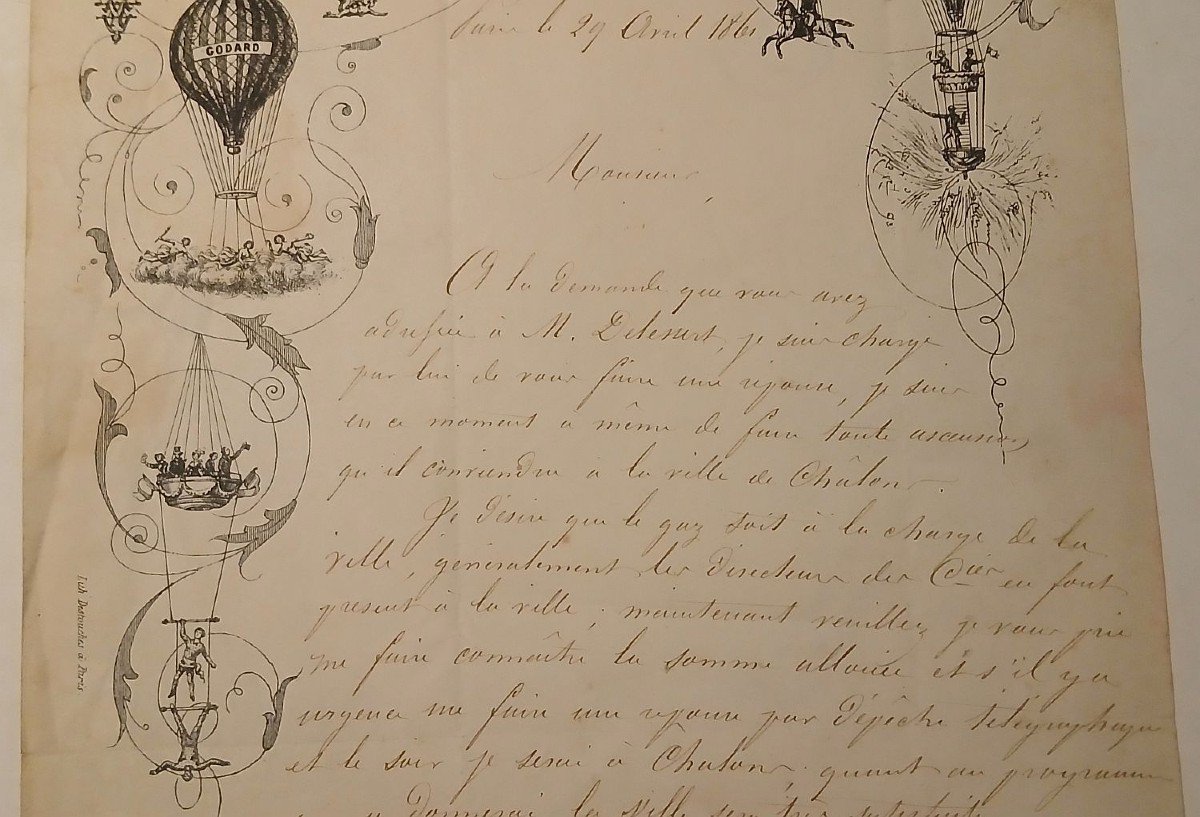 GODARD
Paris le 29 Avril 186
Monsieur
A la demande que vous avez
adressée à M. Delessert, je suis chargé
par lui de vous faire une réponse, je suis
en ce moment a même de faire toute ascension
qu'il conviendra à la ville de Châlons.
Je désire que le gaz soit à la charge de la
ville, généralement les Directeurs des Cies en font
present à la ville, maintenant veuillez, je vous prie
me faire connaître la somme allouée et s'il y a
urgence me faire une réponse par dépêche télégraphique
et le soir je serai à Chalons, quant au programme
donnerai la Ville sera très satisfaite
Lith Destouches à Paris